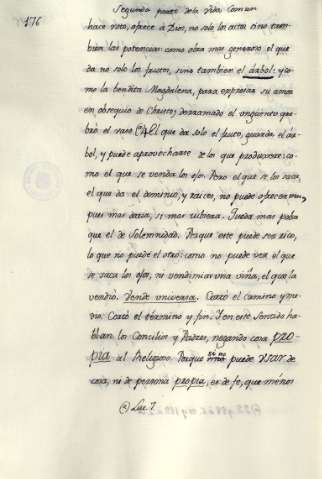 176
Segundo punto de la Vida Comun
hace voto, ofrece á Dios, no solo los actos sino tam-
bien las potencias: como obra mas generosa el que
da no solo los frutos, sino tambien el árbol: y co-
mo la bendita Magdalena, para expresar su amor
en obsequio de Christo, derramado el ungüento que-
bró el vaso (a) El que da solo el fruto, guarda el ár-
bol, y puede aprovecharse de lo que produxere: co-
mo el que se venda los ojos. Pero el que se los saca,
el que da el dominio, y raices, no puede ofrecer mas,
pues mas daria, si mas tubiera. Queda mas pobre
que el de Solemnidad. Porque este puede ser rico,
lo que no puede el otro: como no puede ver el que
se saca los ojos, ni vendimiar una viña, el que la
vendió. Vende universa. Cortó el camino y me-
dio. Cortó el término y fin. Y en este sentido ha-
blan los Concilios y Padres, negando cosa pro-
pra al Religioso. Porque no puede usar de
cosa, ni de persona propra, es de fe, que menos
(a) Luc. 7.